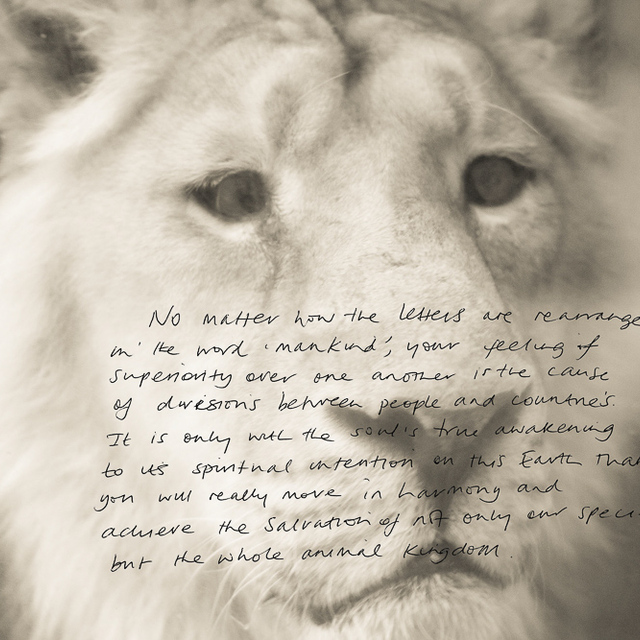 No matter how the letters are rearrange
in the word 'mankind', your feeling of
superiority over one another is the cause
of divisions between people and countries.
It is only with the soul's true awakening
to its spiritual intention on this Earth that
you will really move in harmony and
achieve the salvation of not only our speci
but the whole animal kingdom.